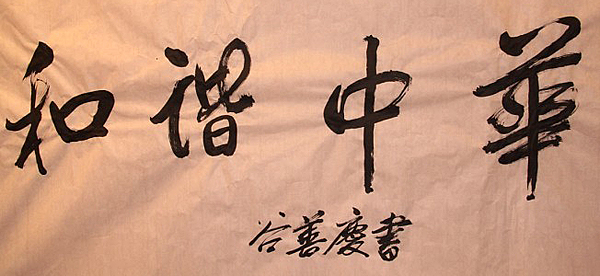 和谐中華
谷善慶書